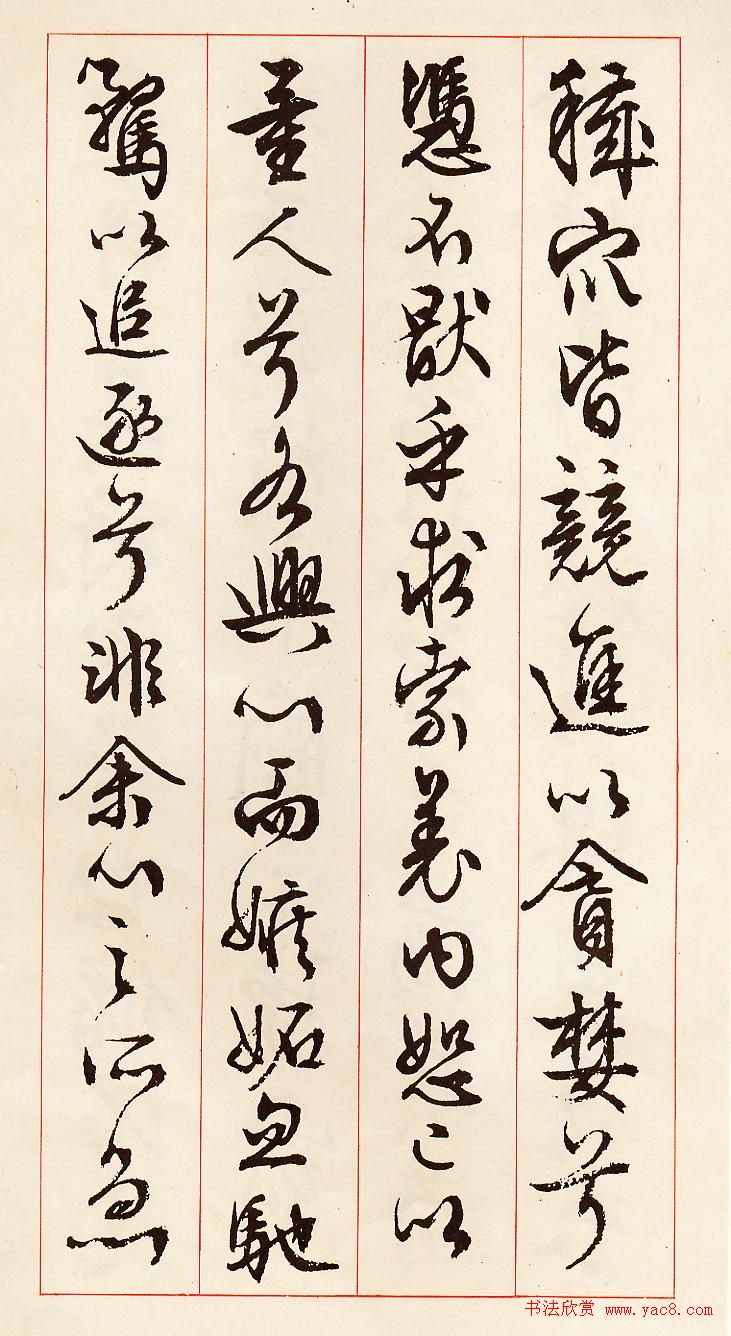 穢衆皆競進以貪婪兮
憑不猒乎求索羌內恕己以
量人兮各興心而嫉妬忽馳
騖以追逐兮非余心之所急
书法欣赏 www.yac8.com